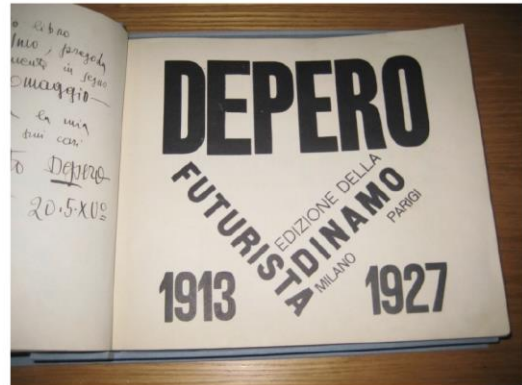 o libro
omaggio
la mia
suoi cari
Depero
20.5.XVº
DEPERO
FUTURISTA
EDIZIONE DELLA
DINAMO
MILANO
PARIGI
1913
1927